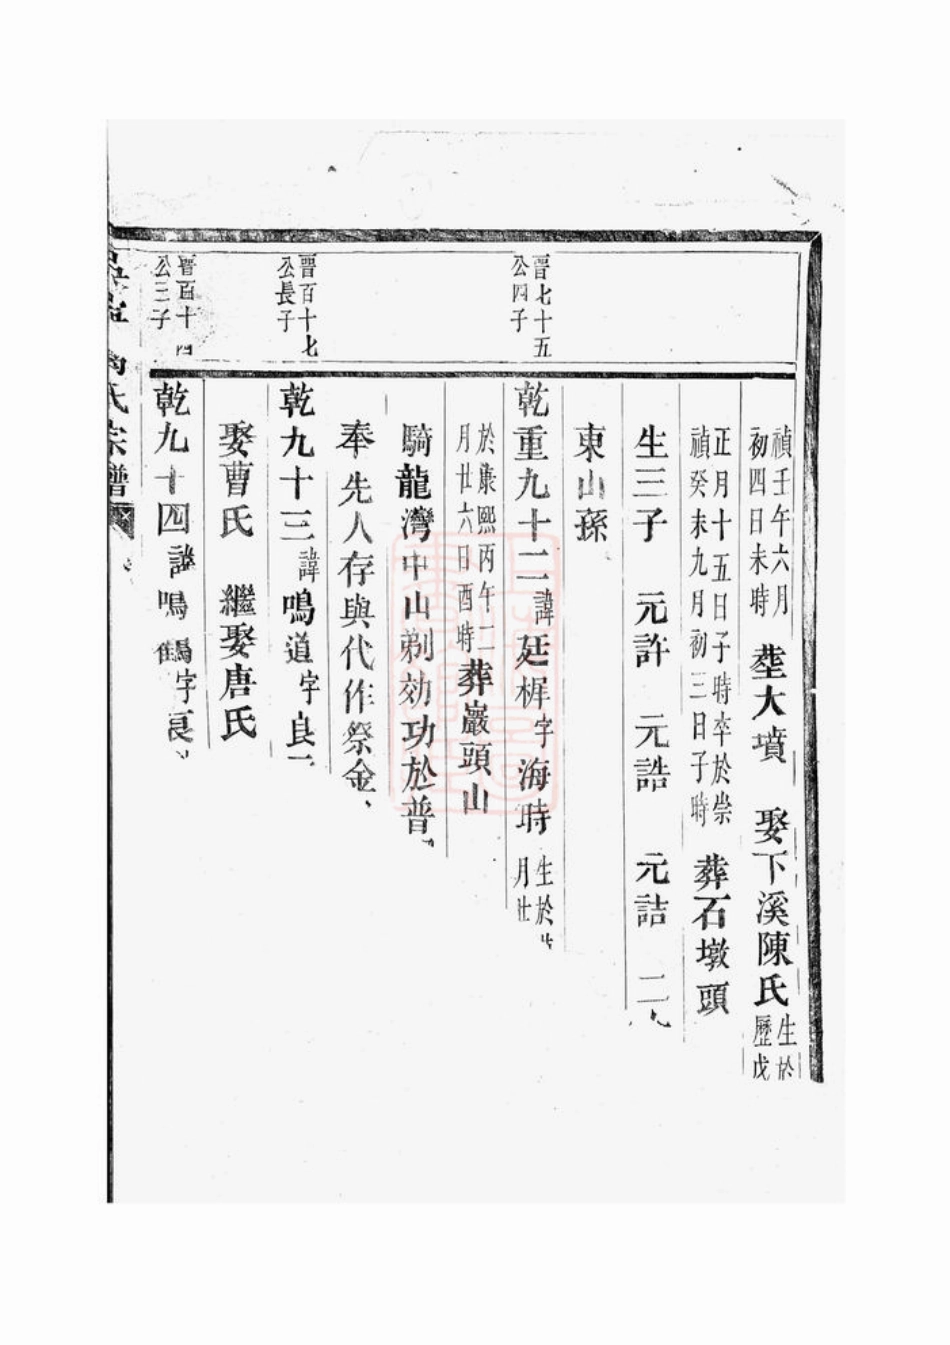 禎壬午六月初四日未時 塟大墳 娶下溪陳氏生於歷戊
正月十五日子時卒於崇禎癸未九月初三日子時 葬石墩頭
生三子 元許 元誥 元詰 二
東山孫
晉七十五公四子
乾重九十二諱延樨字海時生於月廿
於康熙丙午二月廿六日酉時葬巖頭山
騎龍灣中山剃効功於普
奉先人存與代作祭金
晉百十七公長子
乾九十三諱鳴道字良
娶曹氏 繼娶唐氏
晉百十四公三子
乾九十四諱鳴鶴字良
氏宗譜